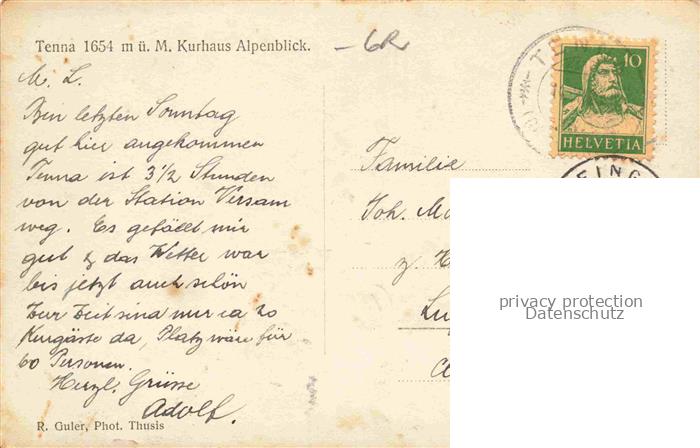 Tenna 1654 m ü. M. Kurhaus Alpenblick.
-6R
M. L.
Bin letzten Sonntag
gut hier angekommen
Tenna ist 3 1/2 Stunden
von der Station Versam
weg. Es gefällt mir
gut & das Wetter war
bis jetzt auch schön
Zur Zeit sind nur ca 20
Kurgäste da, Platz wäre für
60 Personen.
Herzl. Grüsse
Adolf.
R. Guler, Phot. Thusis
10
HELVETIA
Familie
Joh.
z.
privacy protection
Datenschutz